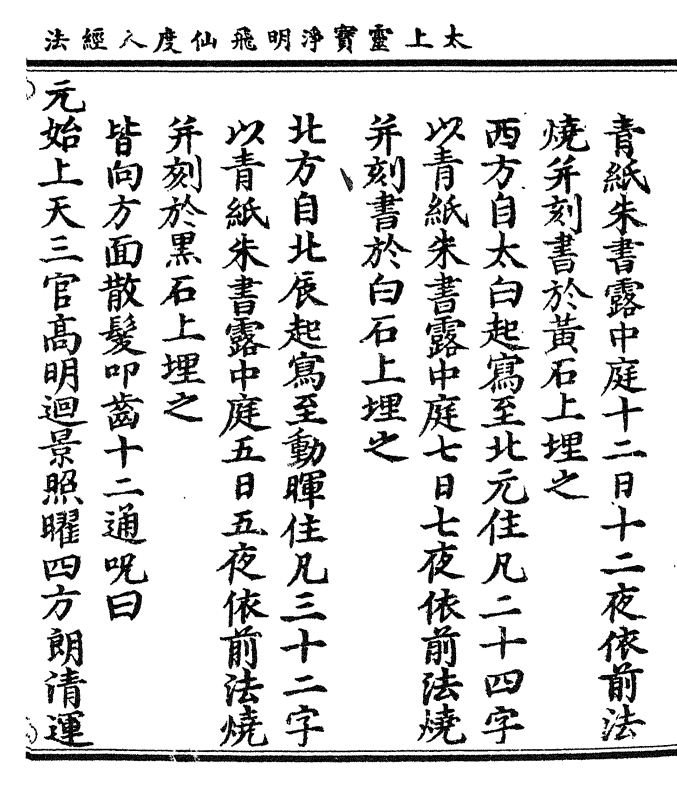 太上靈寶淨明飛仙度人經法
青紙朱書露中庭十二日十二夜依前法
燒并刻書於黃石上埋之
西方自太白起寫至北元住凡二十四字
以青紙朱書露中庭七日七夜依前法燒
并刻書於白石上埋之
北方自北辰起寫至動暉住凡三十二字
以青紙朱書露中庭五日五夜依前法燒
并刻於黑石上埋之
皆向方面散髮叩齒十二通呪曰
元始上天三官高明迴景照曜四方朗清運